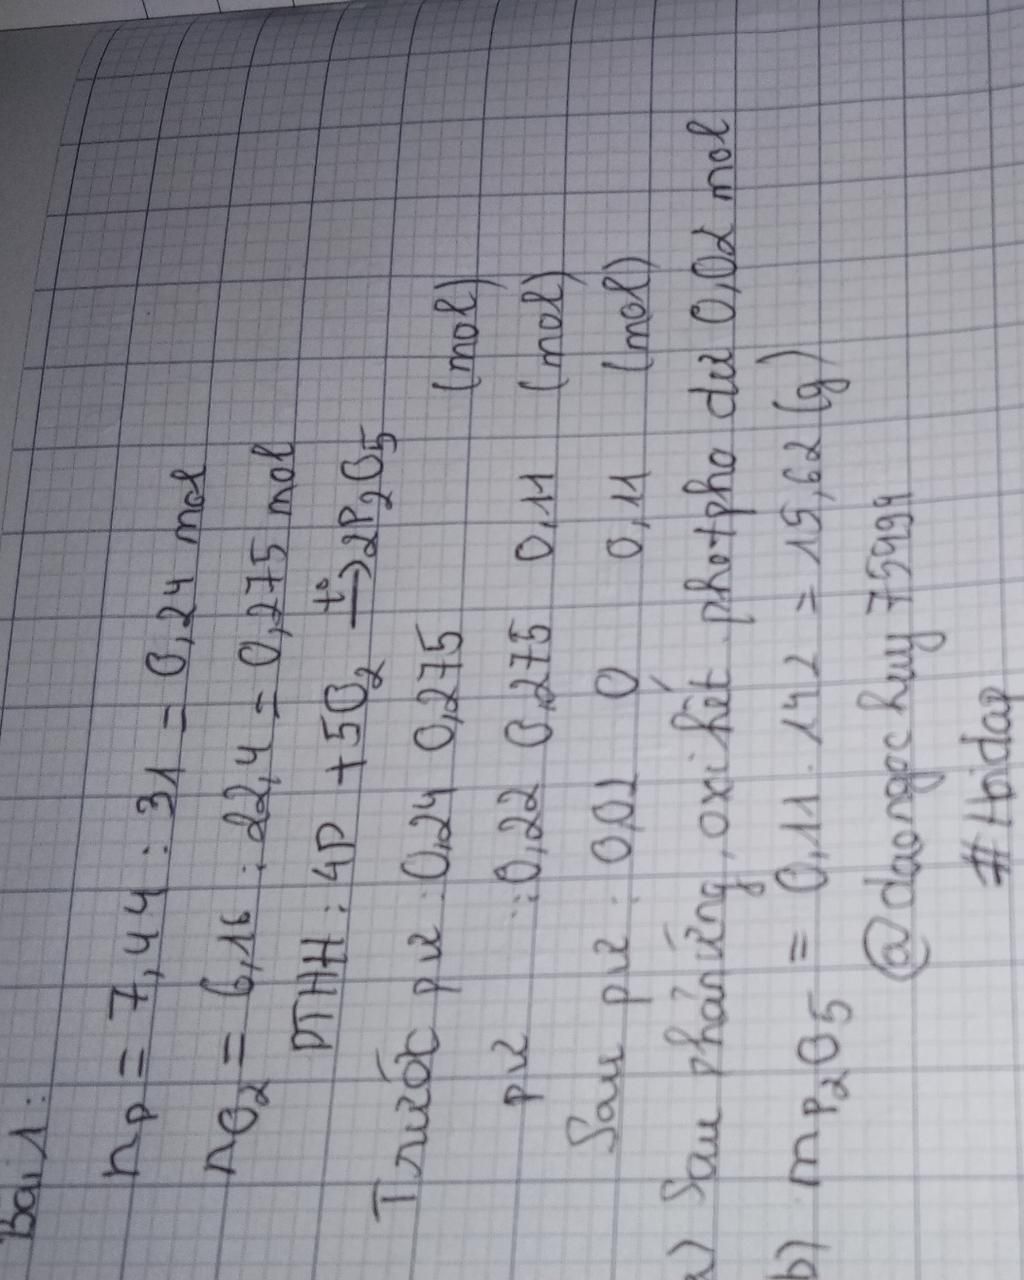 Bài 1:
nP = 7,44 : 31 = 0,24 mol
nO2 = 6,16 : 22,4 = 0,275 mol
PTHH : 4P + 5O2 t° → 2P2O5
Trước pư : 0,24 0,275 (mol)
pư : 0,22 0,275 0,11 (mol)
Sau pư : 0,02 0 0,11 (mol)
a) Sau phản ứng, oxi hết photpho dư 0,02 mol
b) mP2O5 = 0,11 . 142 = 15,62 (g)
@daongochuy75494
#Hoidap